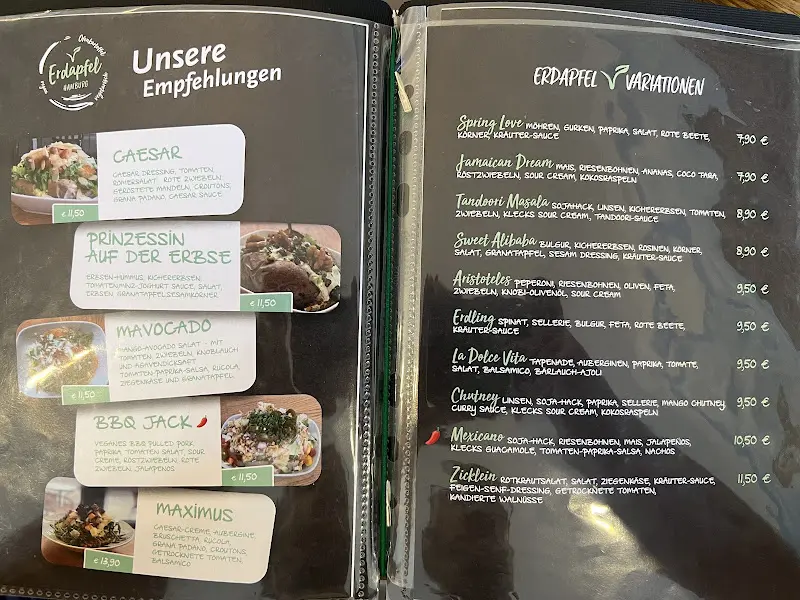 Erdapfel
HAMBURG
Unsere
Empfehlungen
CAESAR
CAESAR DRESSING, TOMATEN,
RÖMERSALAT, ROTE ZWIEBELN,
GERÖSTETE MANDELN, CROUTONS,
GRANA PADANO, CAESAR SAUCE
€ 11,50
PRINZESSIN
AUF DER ERBSE
ERBSEN-HUMMUS, KICHERERBSEN,
TOMATEN-MINZ-JOGHURT SAUCE, SALAT,
ERBSEN, GRANATAPFEL, SESAMKÖRNER
€ 11,50
MAVOCADO
MANGO-AVOCADO SALAT - MIT
TOMATEN, ZWIEBELN, KNOBLAUCH
UND AGAVENDICKSAFT,
TOMATEN-PAPRIKA-SALSA, RUCOLA,
ZIEGENKÄSE UND GRANATAPFEL
€ 11,50
BBQ JACK
VEGANES BBQ PULLED PORK,
PAPRIKA, TOMATEN, SALAT, SOUR
CREME, RÖSTZWIEBELN, ROTE
ZWIEBELN, JALAPENOS
€ 11,50
MAXIMUS
CAESAR-CREME, AUBERGINE,
BRUSCHETTA, RUCOLA,
GRANA PADANO, CROUTONS,
GETROCKNETE TOMATEN,
BALSAMICO
€ 13,90
ERDAPFEL VARIATIONEN
Spring Love MÖHREN, GURKEN, PAPRIKA, SALAT, ROTE BEETE,
KÖRNER, KRÄUTER-SAUCE 7,90 €
Jamaican Dream MAIS, RIESENBOHNEN, ANANAS, COCO TARA,
RÖSTZWIEBELN, SOUR CREAM, KOKOSRASPELN 7,90 €
Tandoori Masala SOJAHACK, LINSEN, KICHERERBSEN, TOMATEN,
ZWIEBELN, KLECKS SOUR CREAM, TANDOORI-SAUCE 8,90 €
Sweet Alibaba BULGUR, KICHERERBSEN, ROSINEN, KÖRNER,
SALAT, GRANATAPFEL, SESAM DRESSING, KRÄUTER-SAUCE 8,90 €
Aristoteles PEPERONI, RIESENBOHNEN, OLIVEN, FETA,
ZWIEBELN, KNOBI-OLIVENÖL, SOUR CREAM 9,50 €
Erdling SPINAT, SELLERIE, BULGUR, FETA, ROTE BEETE,
KRÄUTER-SAUCE 9,50 €
La Dolce Vita TAPENADE, AUBERGINEN, PAPRIKA, TOMATE,
SALAT, BALSAMICO, BÄRLAUCH-AJOLI 9,50 €
Chutney LINSEN, SOJA-HACK, PAPRIKA, SELLERIE, MANGO CHUTNEY,
CURRY SAUCE, KLECKS SOUR CREAM, KOKOSRASPELN 9,50 €
Mexicano SOJA-HACK, RIESENBOHNEN, MAIS, JALAPEÑOS,
KLECKS GUACAMOLE, TOMATEN-PAPRIKA-SALSA, NACHOS 10,50 €
Zicklein ROTKRAUTSALAT, SALAT, ZIEGENKÄSE, KRÄUTER-SAUCE,
FEIGEN-SENF-DRESSING, GETROCKNETE TOMATEN,
KANDIERTE WALNÜSSE 11,50 €